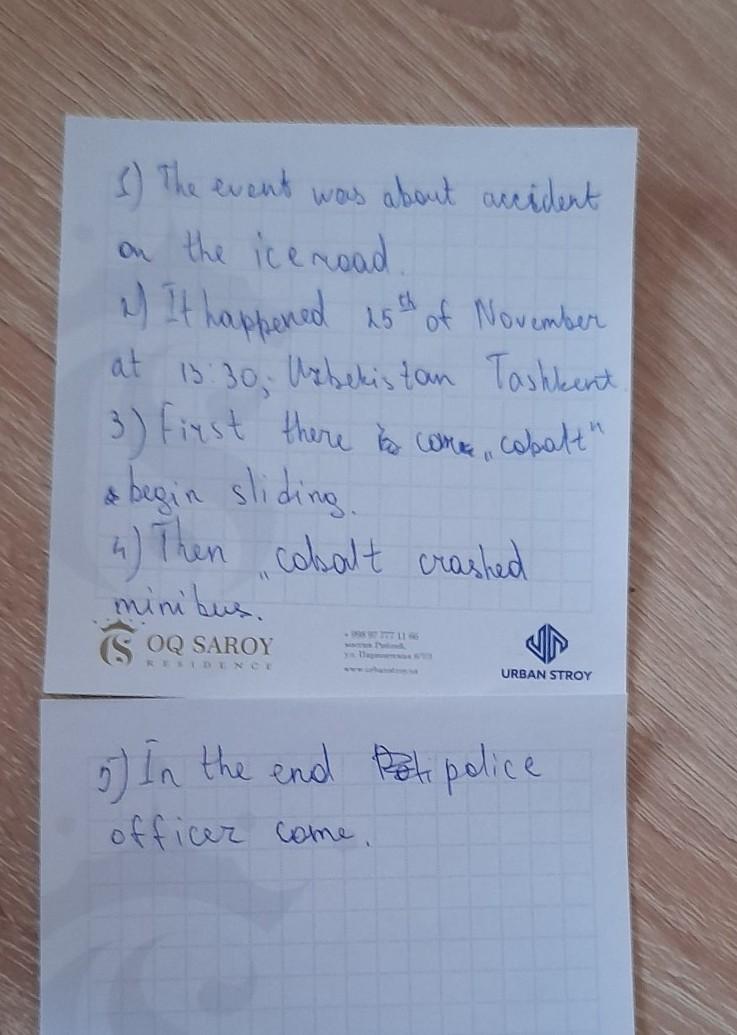 1) The event was about accident
on the ice road.
2) It happened 25th of November
at 13:30, Uzbekistan Tashkent
3) First there come „cobalt"
begin sliding.
4) Then „cobalt crashed
minibus.
OQ SAROY
RESIDENCE
+998 97 777 11 66
www.urbanstroy.uz
URBAN STROY
5) In the end police
officer come.